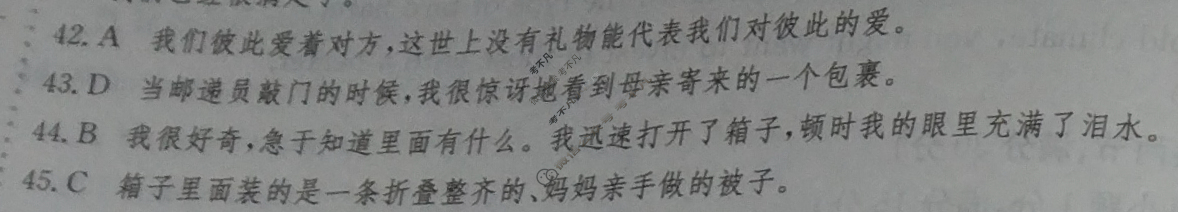 42. A 我们彼此爱着对方,这世上没有礼物能代表我们对彼此的爱。
43. D 当邮递员敲门的时候,我很惊讶地看到母亲寄来的一个包裹。
44. B 我很好奇,急于知道里面有什么。我迅速打开了箱子,顿时我的眼里充满了泪水。
45. C 箱子里面装的是一条折叠整齐的、妈妈亲手做的被子。